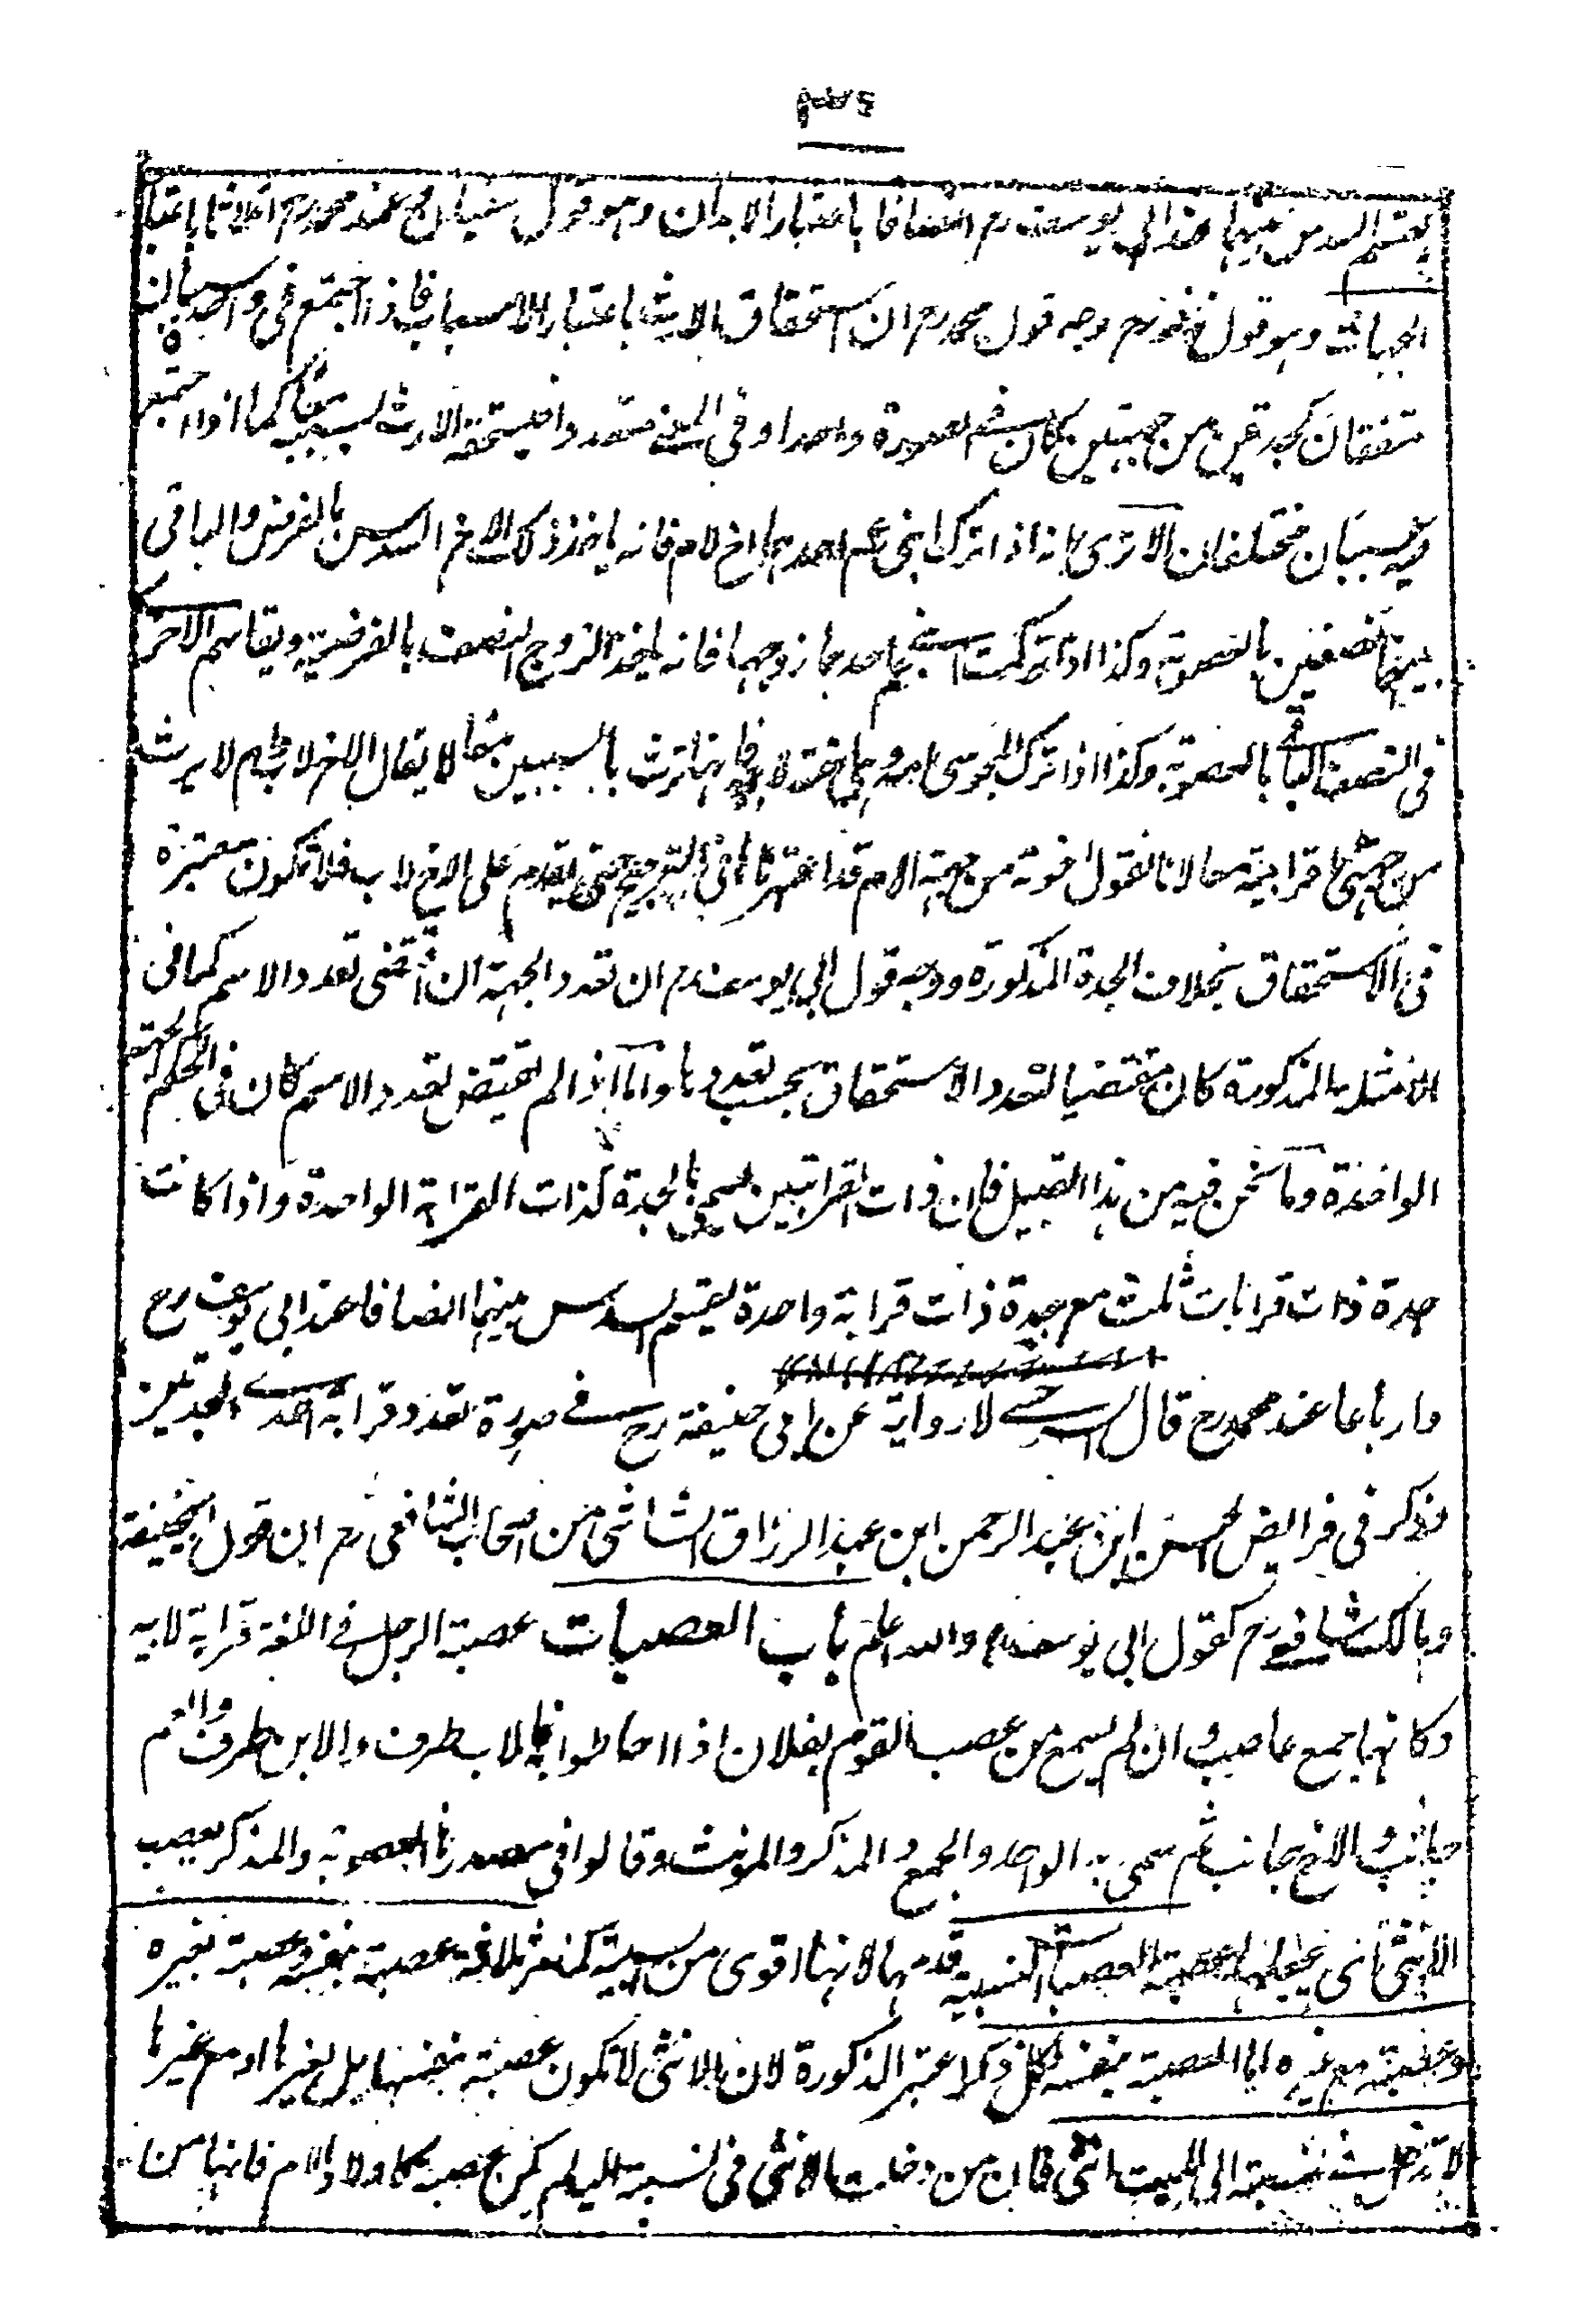 يقسم السدس بينهما عند ابي يوسف رح انصافا باعتبار الابدان وهو قول سفيان رح عند محمد رح اثلاثا باعتبار
الجهات وهو قول زفر رح وجه قول محمد رح ان استحقاق الارث باعتبار الاسباب فاذا اجتمع في واحد سببان
متفقان كجدة من جهتين كان شخص بصورة واحدا وفي المعنى متعددا فيستحق الارث بسببيه معا كما اذا اجتمع
فيه سببان مختلفان الا ترى انه اذا ترك ابني عم احدهما اخ لام فانه ياخذ ذلك الاخ السدس بالفرض والباقي
بينهما نصفين بالعصوبة وكذا اذا تركت ابني عم احدهما زوجها فانه ياخذ الزوج النصف بالفرضية ويقاسم الاخر
في النصف الباقي بالعصوبة وكذا اذا ترك المجوسي امه وهي اخته لابيه فانها ترث بالسببين معا لا يقال الاخ لاب وام لا يرث
من جهتي قرابته معا لانا نقول اخوته من جهة الام قد اعتبرناها في الترجيح حتى يقدم على الاخ لاب فلا تكون معتبرة
في الاستحقاق بخلاف الجدة المذكورة ووجه قول ابي يوسف رح ان تعدد الجهة ان اقتضى تعدد الاسم كما في
الامثلة المذكورة كان مقتضيا لتعدد الاستحقاق بحسب تعددها واما اذا لم يقتض تعدد الاسم كان في الحكم كالجهة
الواحدة وما نحن فيه من هذا القبيل فان ذات القرابتين تسمى بالجدة كذات القرابة الواحدة واذا كانت
جدة ذات قرابات ثلث مع جدة ذات قرابة واحدة يقسم السدس بينهما انصافا عند ابي يوسف رح
وارباعا عند محمد رح قال السرخسي لا رواية عن ابي حنيفة رح في صورة تعدد قرابة احدى الجدتين
وذكر في فرايض الحسن ابن عبد الرحمن ابن عبد الرزاق الشاشي من اصحاب الشافعي رح ان قول ابيحنيفة
ومالك والشافعي رح كقول ابي يوسف رح والله اعلم باب العصبات عصبة الرجل في اللغة قرابة لابيه
وكانها جمع عاصب وان لم يسمع من عصب القوم بفلان اذا احاطوا به فالاب طرف والابن طرف والعم
جانب والاخ جانب ثم سمى به الواحد والجمع والمذكر والمونث وقالوا في مصدرها العصوبة والمذكر يعصب
الانثى اي يجعلها عصبة العصبات النسبية قدمها لانها اقوى من السببية كما مر ثلاثة عصبة بنفسه وعصبة بغيره
وعصبة مع غيره اما العصبة بنفسه فكل ذكر اعتبر الذكورة لان الانثى لا تكون عصبة بنفسها بل بغيرها او مع غيرها
لا تدخل في نسبته الى الميت انثى فان من دخلت الانثى في نسبته اليه لم يكن عصبة كاولاد الام فانها من